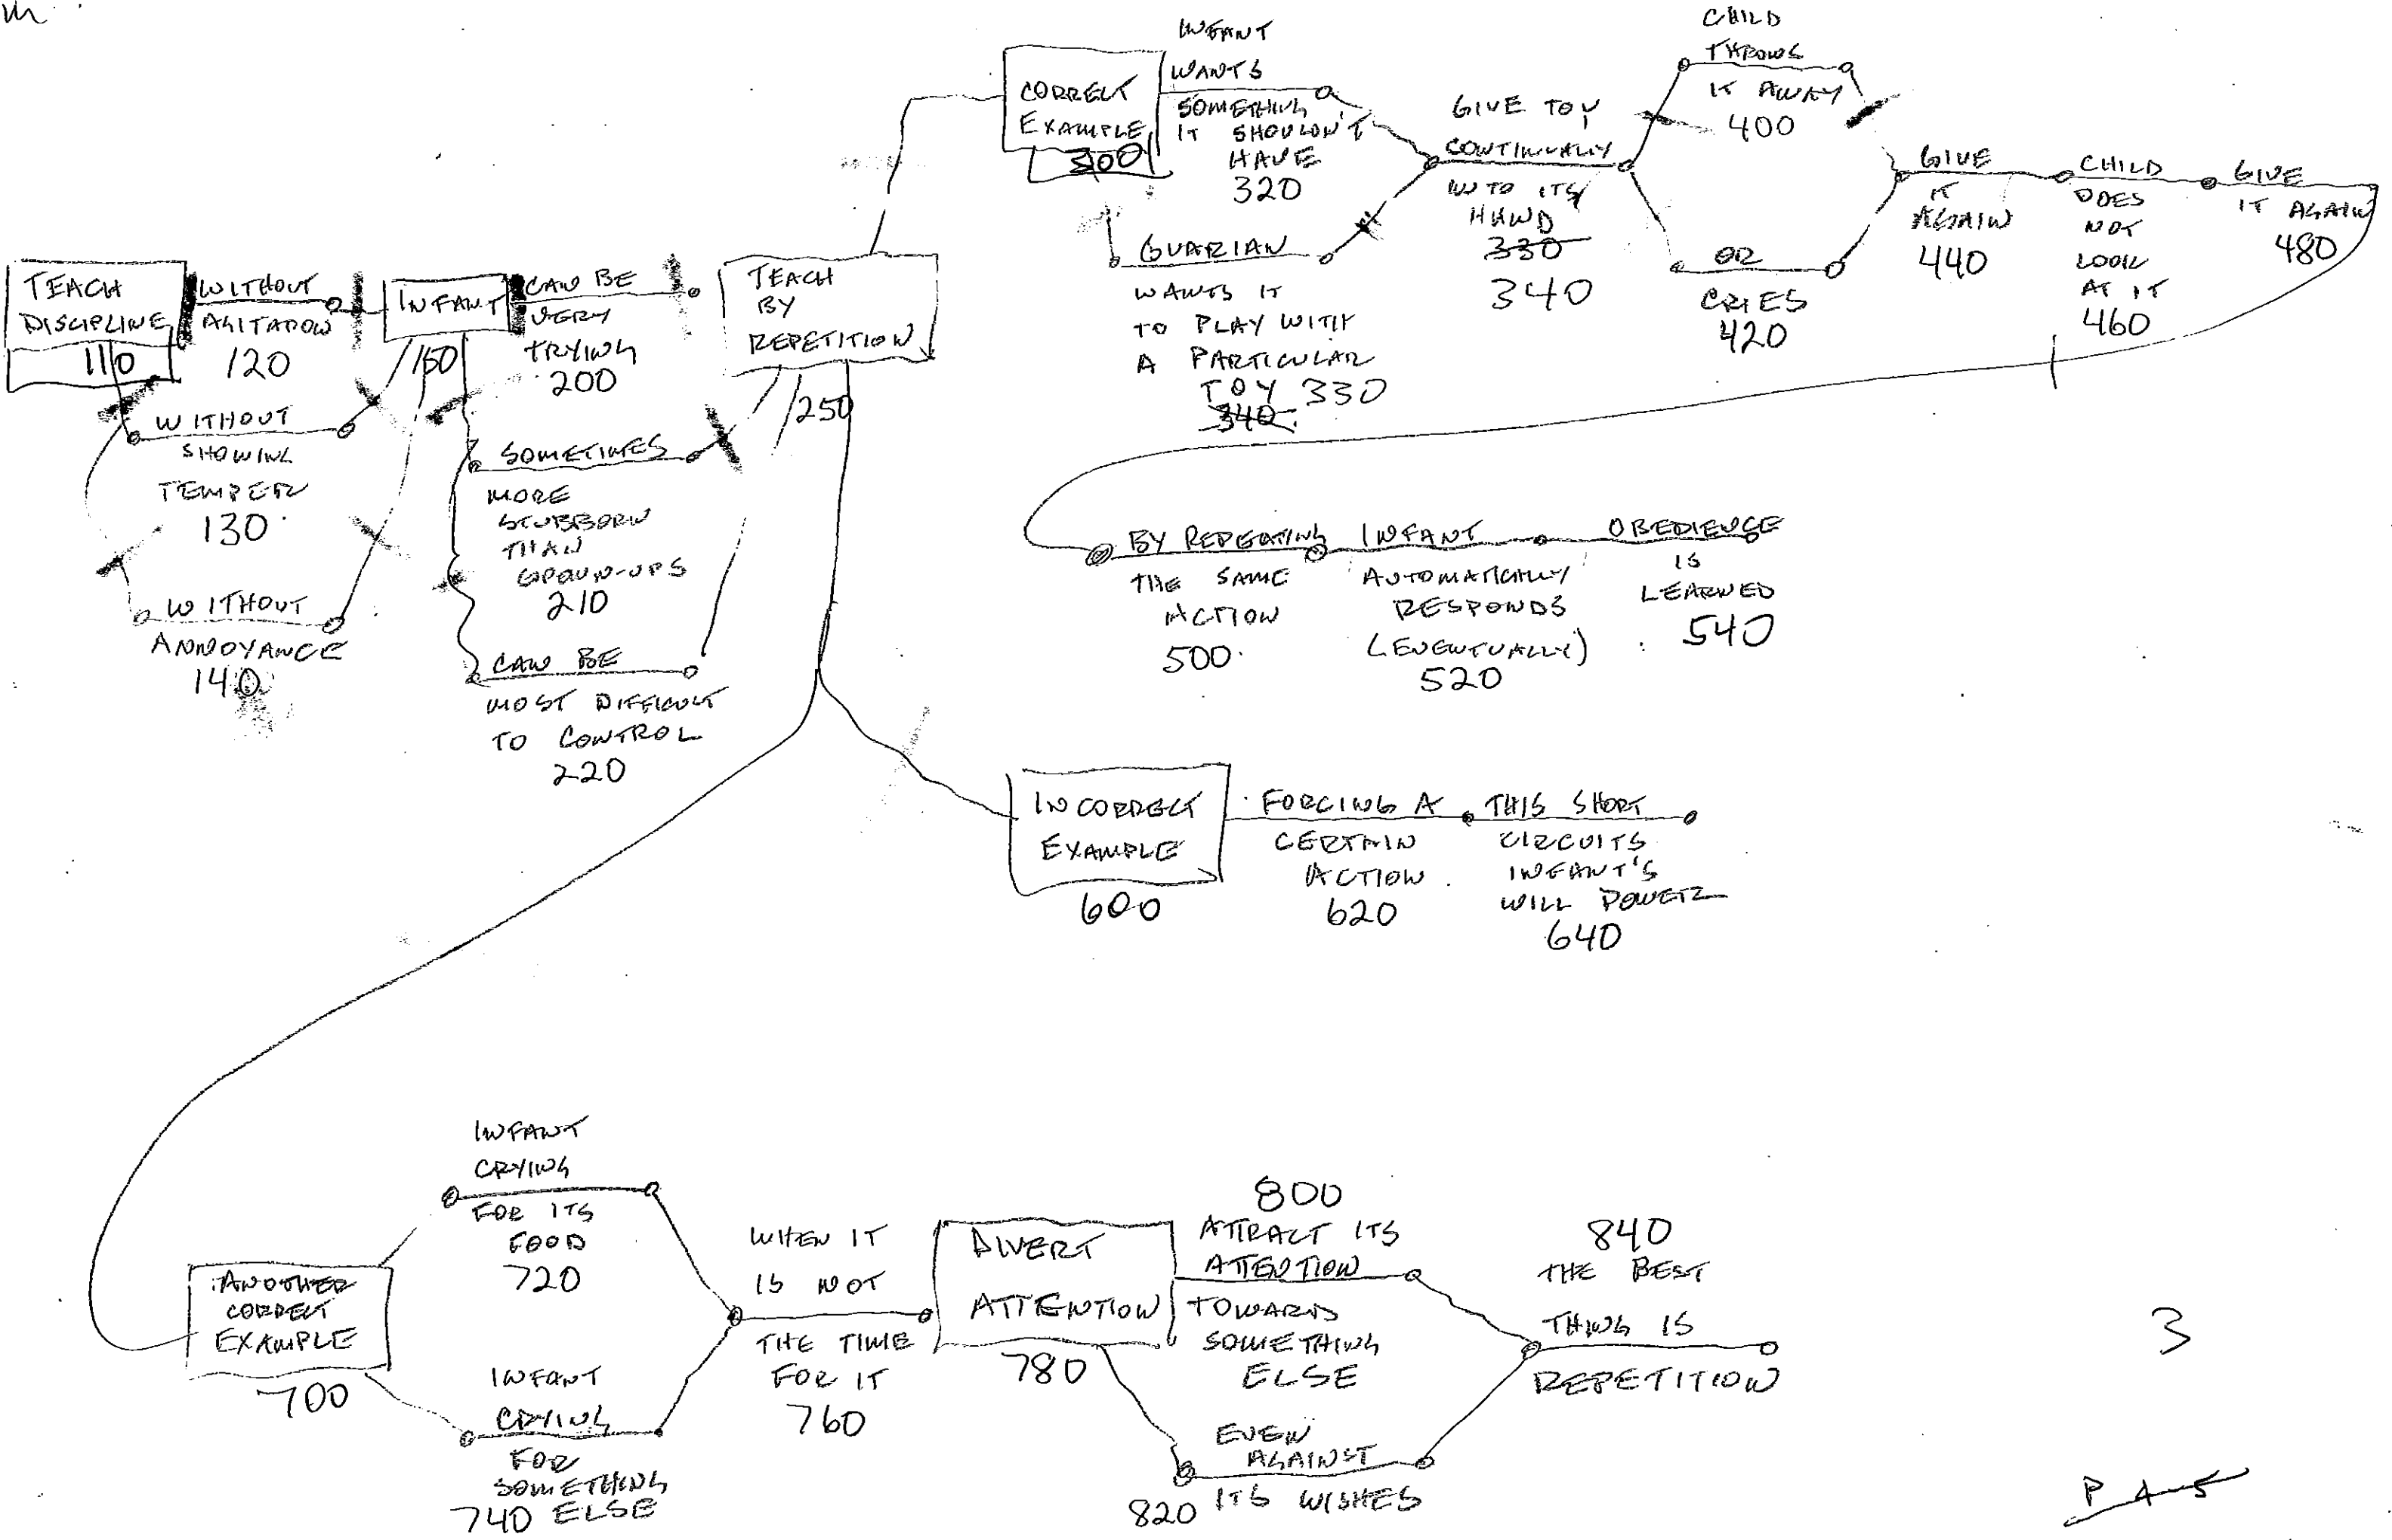 TEACH
DISCIPLINE
110
WITHOUT
AGITATION
120
WITHOUT
SHOWING
TEMPER
130
WITHOUT
ANNOYANCE
140
INFANT
150
CAN BE
VERY
TRYING
200
SOMETIMES
MORE
STUBBORN
THAN
GROWN-UPS
210
CAN BE
MOST DIFFICULT
TO CONTROL
220
TEACH
BY
REPETITION
250
CORRECT
EXAMPLE
300
INFANT
WANTS
SOMETHING
IT SHOULDN'T
HAVE
320
GUARIAN
WANTS IT
TO PLAY WITH
A PARTICULAR
TOY 330
340
GIVE TOY
CONTINUALLY
INTO ITS
HAND
330
340
CHILD
THROWS
IT AWAY
400
OR
CRIES
420
GIVE
IT
AGAIN
440
CHILD
DOES
NOT
LOOK
AT IT
460
GIVE
IT AGAIN
480
BY REPEATING
THE SAME
ACTION
500
INFANT
AUTOMATICALLY
RESPONDS
(EVENTUALLY)
520
OBEDIENCE
IS
LEARNED
540
INCORRECT
EXAMPLE
600
FORCING A
CERTAIN
ACTION
620
THIS SHORT
CIRCUITS
INFANT'S
WILL POWER
640
ANOTHER
CORRECT
EXAMPLE
700
INFANT
CRYING
FOR ITS
FOOD
720
INFANT
CRYING
FOR
SOMETHING
740 ELSE
WHEN IT
IS NOT
THE TIME
FOR IT
760
DIVERT
ATTENTION
780
800
ATTRACT ITS
ATTENTION
TOWARDS
SOMETHING
ELSE
EVEN
AGAINST
820 ITS WISHES
840
THE BEST
THING IS
REPETITION
3
P A 5